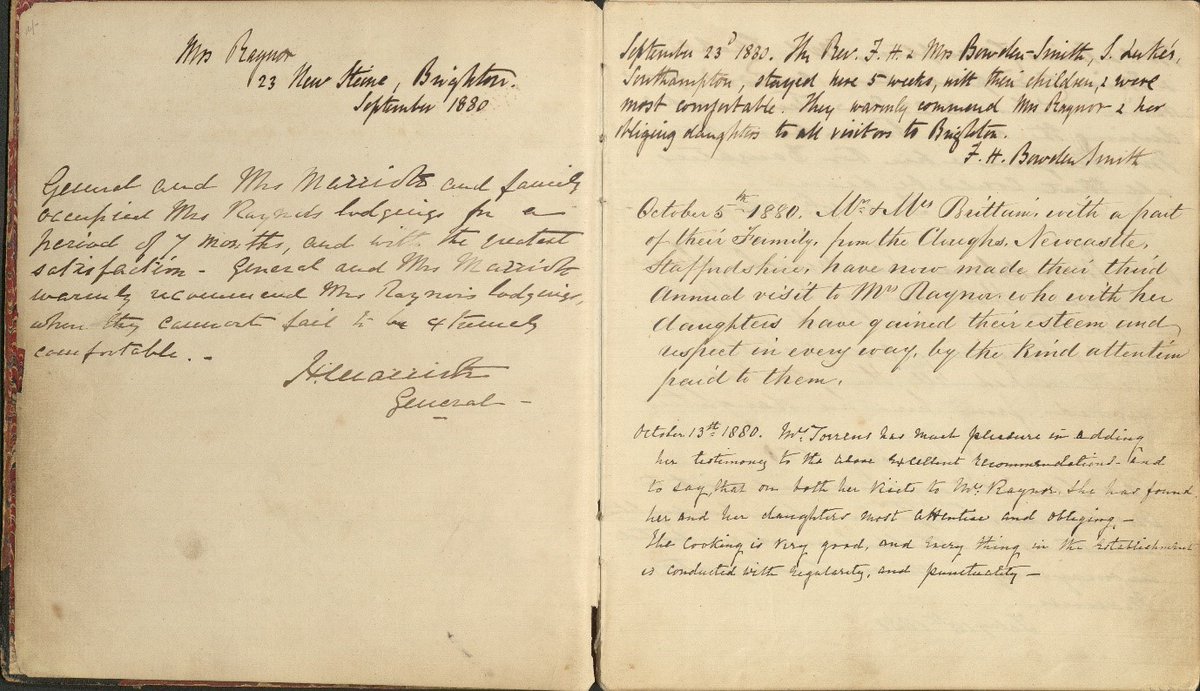 Mrs Raynor
23 New Steine, Brighton.
September 1880
General and Mrs Marriott and family
occupied Mrs Raynor's lodgings for a
period of 7 months, and with the greatest
satisfaction - General and Mrs Marriott
warmly recommend Mrs Raynor's lodgings,
when they cannot fail to be extremely
comfortable. -
H. Marriott
General -
September 23d 1880. The Rev. F. H. & Mrs Bowden-Smith, S. Luke's,
Southampton, stayed here 5 weeks, with their children, & were
most comfortable. They warmly commend Mrs Raynor & her
obliging daughters to all visitors to Brighton.
F. H. Bowden Smith
October 5th 1880. Mr & Mrs Brittain, with a part
of their Family, from the Cloughs, Newcastle,
Staffordshire, have now made their third
Annual visit to Mrs Raynor, who with her
daughters have gained their esteem and
respect in every way, by the kind attention
paid to them.
October 13th 1880. Mrs Torrens has much pleasure in adding
her testimony to the above excellent recommendations - and
to say, that on both her visits to Mrs Raynor, she has found
her and her daughters most attentive and obliging. -
The cooking is very good, and every thing in the establishment
is conducted with regularity, and punctuality -